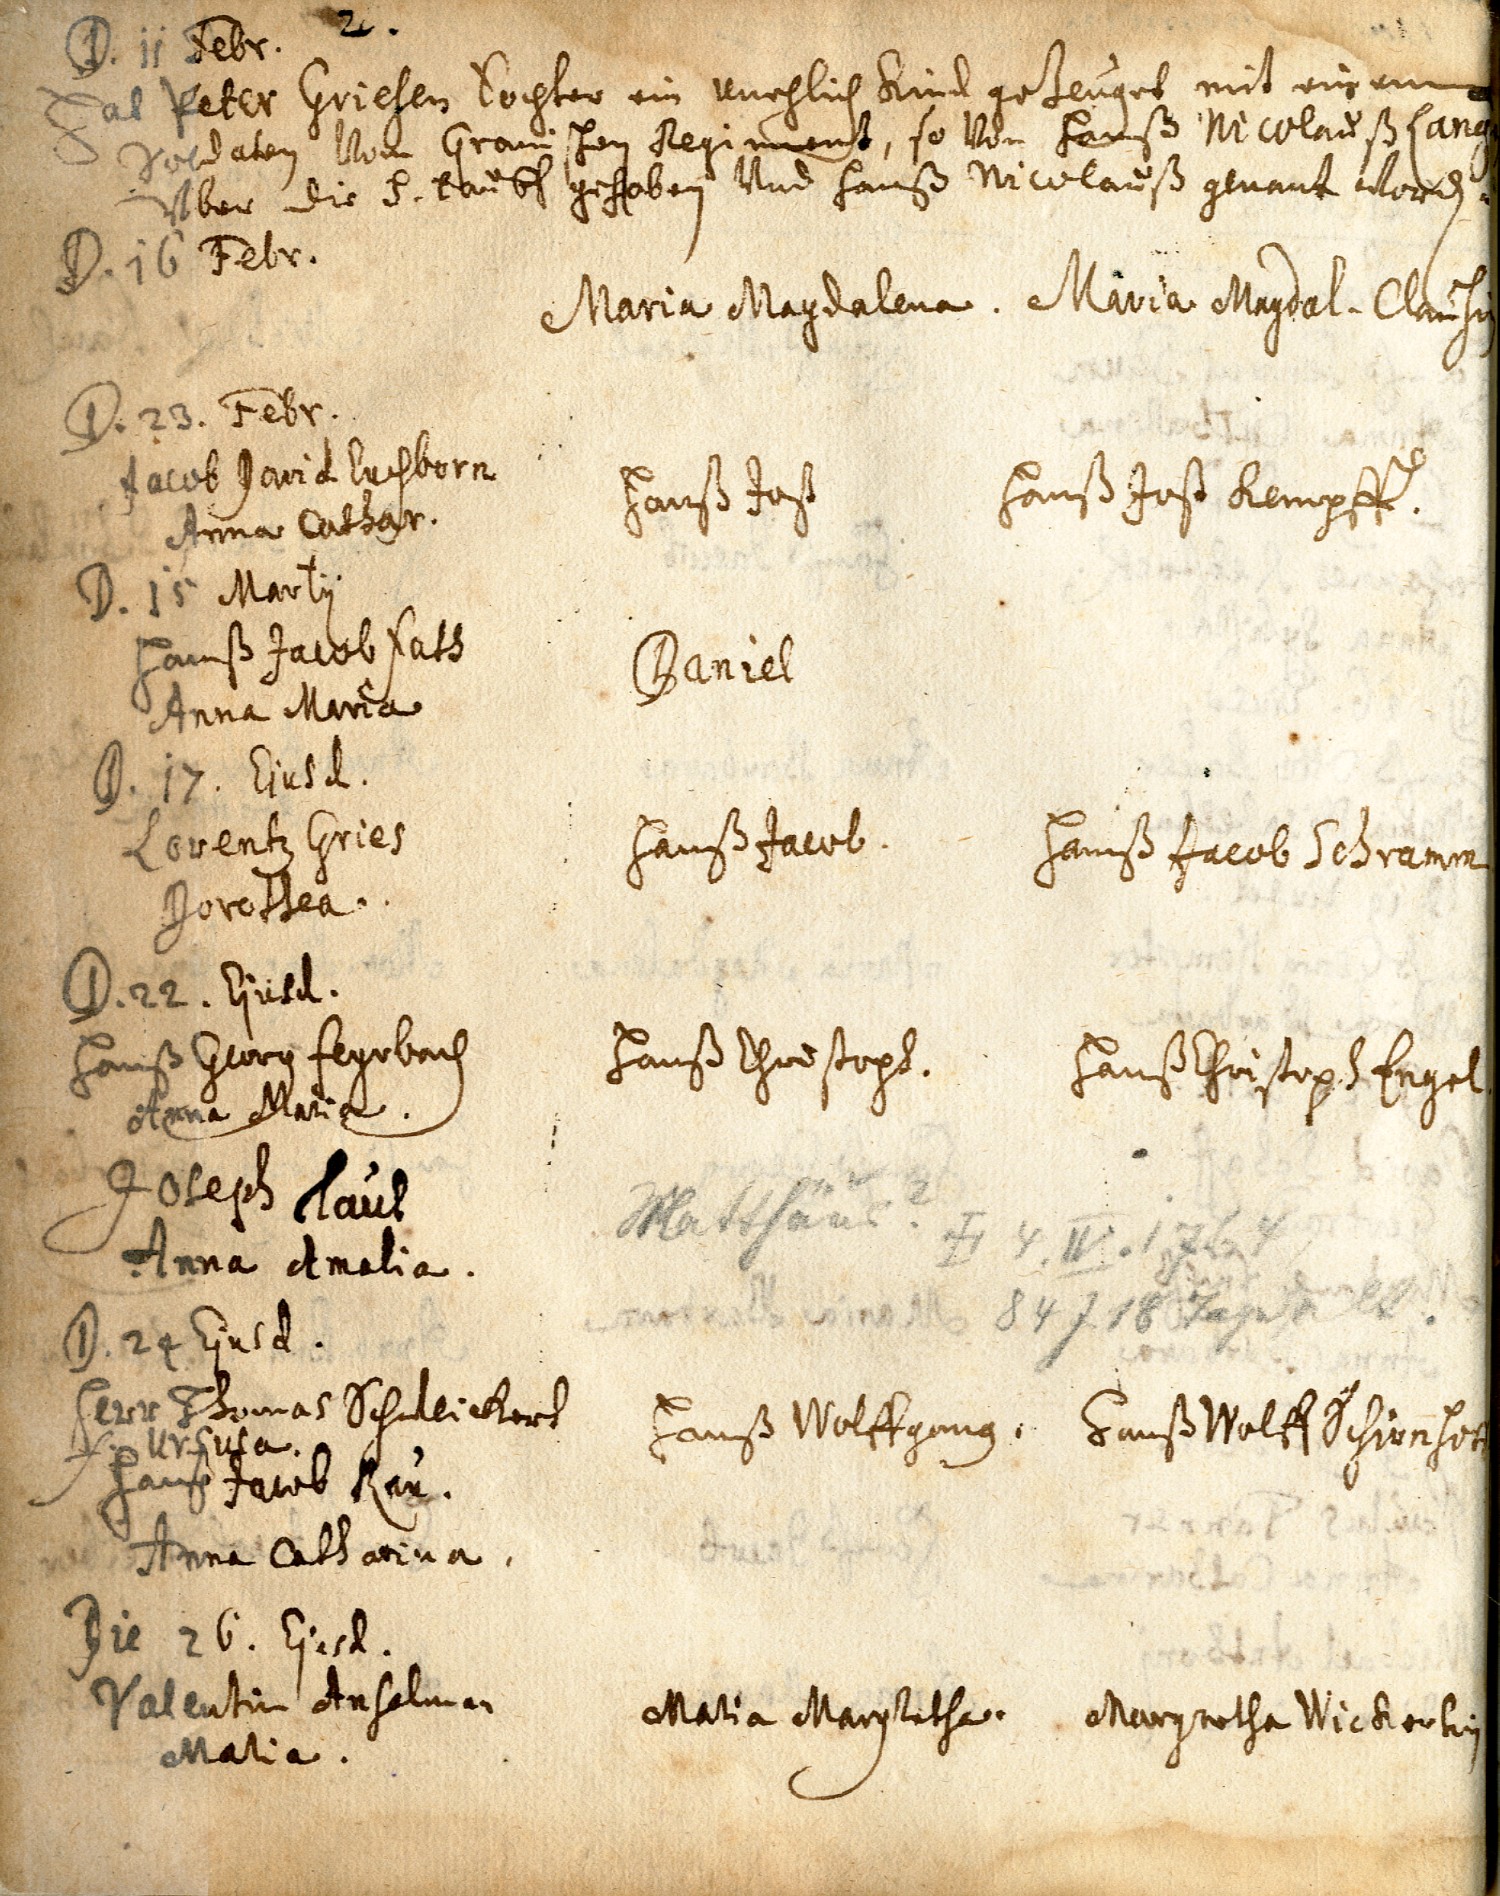 2.
D. 11 Febr.
Hat Peter Griesen Tochter ein unehlich Kind gezeuget mit einem
Soldaten vom Gronischen Regiment, so von Hanß Nicolauß Lang
Über die H. Tauff gehoben Und Hanß Nicolauß genant word.
D. 16 Febr.
Maria Magdalena. Maria Magdal. Claußin
D. 23. Febr.
Jacob David Euchborn Hanß Jost Hanß Jost Kempff.
Anna Cathar.
D. 15 Martij
Hanß Jacob Nath Daniel
Anna Maria
D. 17. Ejusd.
Lorentz Gries Hanß Jacob. Hanß Jacob Schramm
Dorothea.
D. 22. Ejusd.
Hanß Georg Feyrbach Hanß Christoph. Hanß Christoph Engel.
Anna Maria.
Joseph Taub Matthäus? 4. IV. 1764
Anna Amalia.
84 J 18 Tage alt.
D. 24 Ejusd.
Herr Thomas Schweickert Hanß Wolffgang. Hanß Wolff
F. Ursula.
Hanß Jacob Rau.
Anna Catharina.
Die 26. Ejusd.
Valentin Anselman Maria Margretha. Margretha Wickertin
Maria.